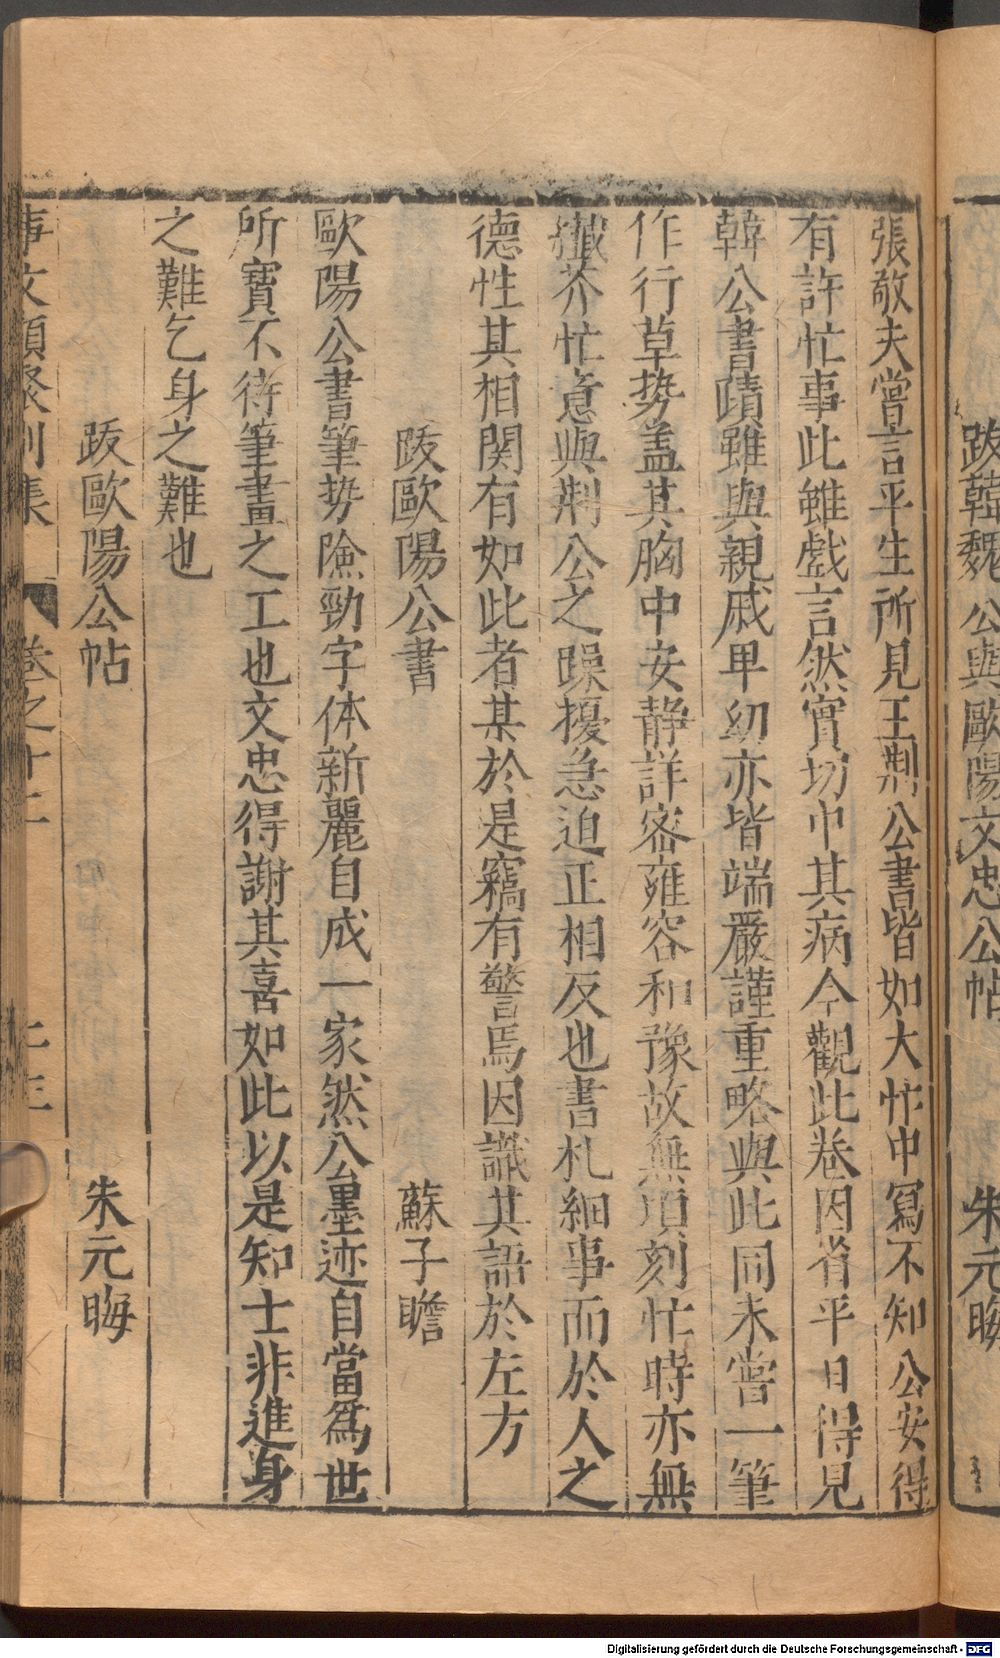 跋韓魏公與歐陽文忠公帖 朱元晦
張敬夫嘗言平生所見王荆公書皆如大忙中寫不知公安得
有許忙事此雖戲言然實切中其病今觀此卷因省平日得見
韓公書蹟雖與親戚卑幼亦皆端嚴謹重略與此同未嘗一筆
作行草势盖其胸中安静詳密雍容和豫故無頃刻忙時亦無
纖芥忙意與荆公之躁擾急迫正相反也書札細事而於人之
德性其相関有如此者某於是竊有警焉因識其語於左方
跋歐陽公書 蘇子瞻
歐陽公書筆势險勁字体新麗自成一家然公墨迹自當爲世
所寳不待筆畫之工也文忠得謝其喜如此以是知士非進身
之難乞身之難也
跋歐陽公帖 朱元晦
事文類聚別集 卷之十二
Digitalisierung gefördert durch die Deutsche Forschungsgemeinschaft - DFG